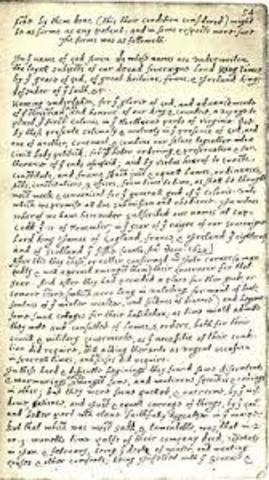 54
by them done (this their condition considered) might
be as firme as any patent; and in some respects more sure.
The forme was as followeth.
In ye name of God Amen. We whose names are underwriten,
the loyall subjects of our dread soveraigne Lord King James
by ye grace of God, of great Britaine, franc, & Ireland king,
defender of ye faith, &c.
Haveing undertaken, for ye glorie of God, and advancemente
of ye christian faith and honour of our king & countrie, a voyage to
plant ye first colonie in ye Northerne parts of Virginia. Doe
by these presents solemnly & mutualy in ye presence of God, and
one of another, covenant, & combine our selves togeather into a
civill body politick; for our better ordering, & preservation & fur-
therance of ye ends aforesaid; and by vertue hearof to enacte,
constitute, and frame such just & equall lawes, ordinances,
Acts, constitutions, & offices, from time to time, as shall be thought
most meete & convenient for ye generall good of ye colonie: unto
which we promise all due submission and obedience. In witnes
wherof we have hereunder subscribed our names at cap-
Codd ye .11. of November, in ye year of ye raigne of our soveraigne
Lord king James of England, france, & Ireland ye eighteenth
and of Scotland ye fiftie fourth. Ano: Dom. 1620.
After this they chose, or rather confirmed mr John carver (a man
godly & well approved amongst them) their Governour for that
year. And after they had provided a place for their goods, or
comone store, (which were long in unlading for want of boats,
foulnes of ye winter weather, and sicknes of diverce) and begune
some small cottages for their habitation; as time would admitte
they mette and consulted of lawes, & orders, both for their
civill & military Govermente, as ye necessitie of their condi-
tion did require, still adding therunto as urgent occasion
in severall times, and as cases did require.
In these hard & difficulte beginings they found some discontents
& murmurings arise amongst some, and mutinous speeches & carriags
in other; but they were soone quelled, & overcome, by ye wis-
dome, patience, and just & equall carrage of things, by ye Govr
and better part wch clave faithfully togeather in ye maine.
But that which was most sadd, & lamentable, was, that in 2.
or 3. moneths time halfe of their company dyed, espetialy
in Jan: & february, being ye depth of winter, and wanting
houses & other comforts; being infected with ye scurvie &